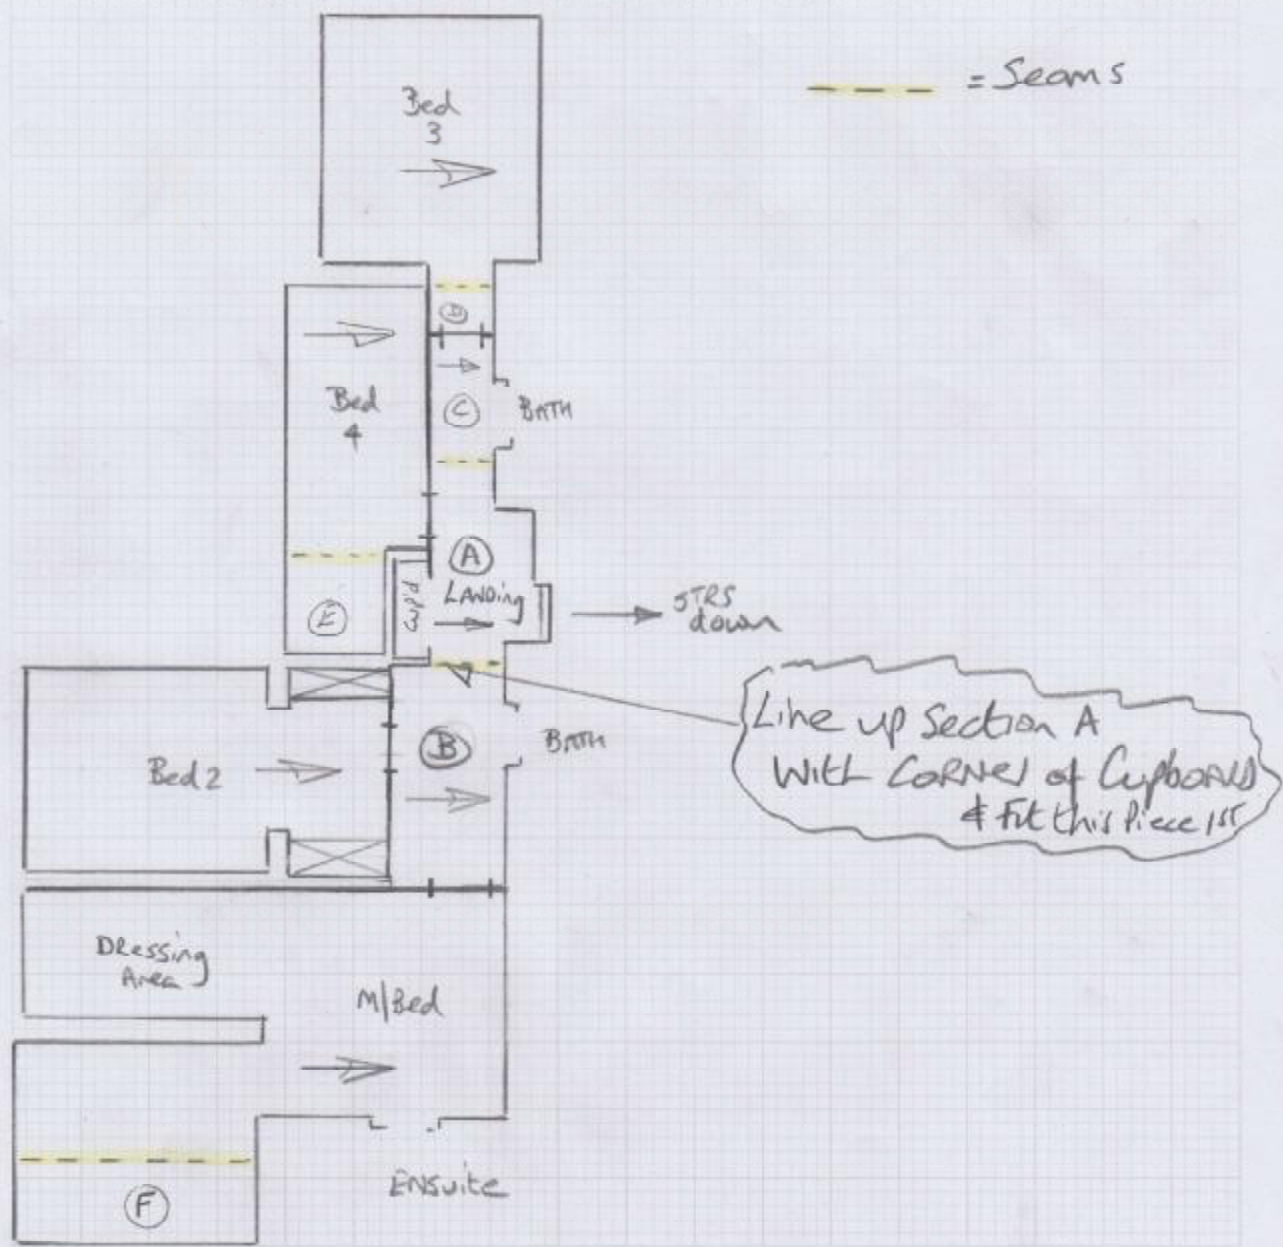 = Seams
Bed
3
D
Bed
4
C
BATH
A
LANDing
Cup'd
E
STRS
down
Line up Section A
With CORNER of Cupboard
& Fit this Piece 1st
B
BATH
Bed 2
DRessing
Area
M/Bed
ENSuite
F